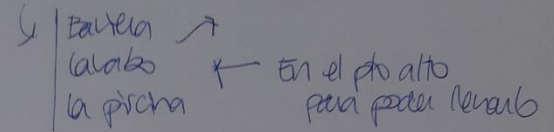 Bañera
lavabo ← En el pto alto
la piscina para poder llenarlo